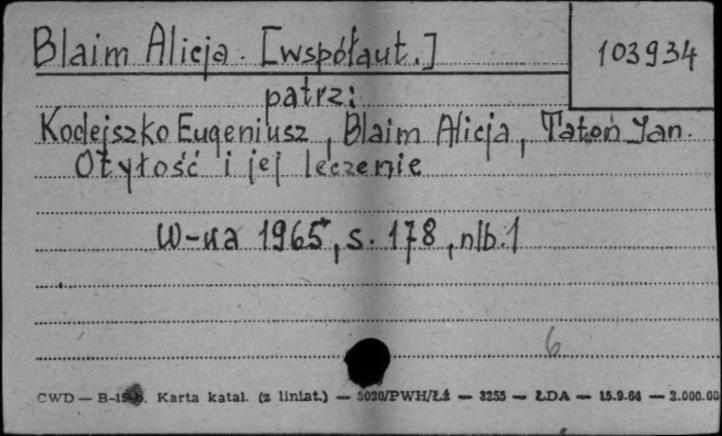 Blaim Alicja. [współaut.]
103934
patrz:
Kodejszko Eugeniusz, Blaim Alicja, Tatoń Jan.
Otyłość i jej leczenie
W-wa 1965, s. 178, nlb. 1
6
CWD — B-15-b. Karta katal. (z liniat.) — 5020/PWH/Łź — 3255 — ŁDA — 15.9.64 — 2.000.00